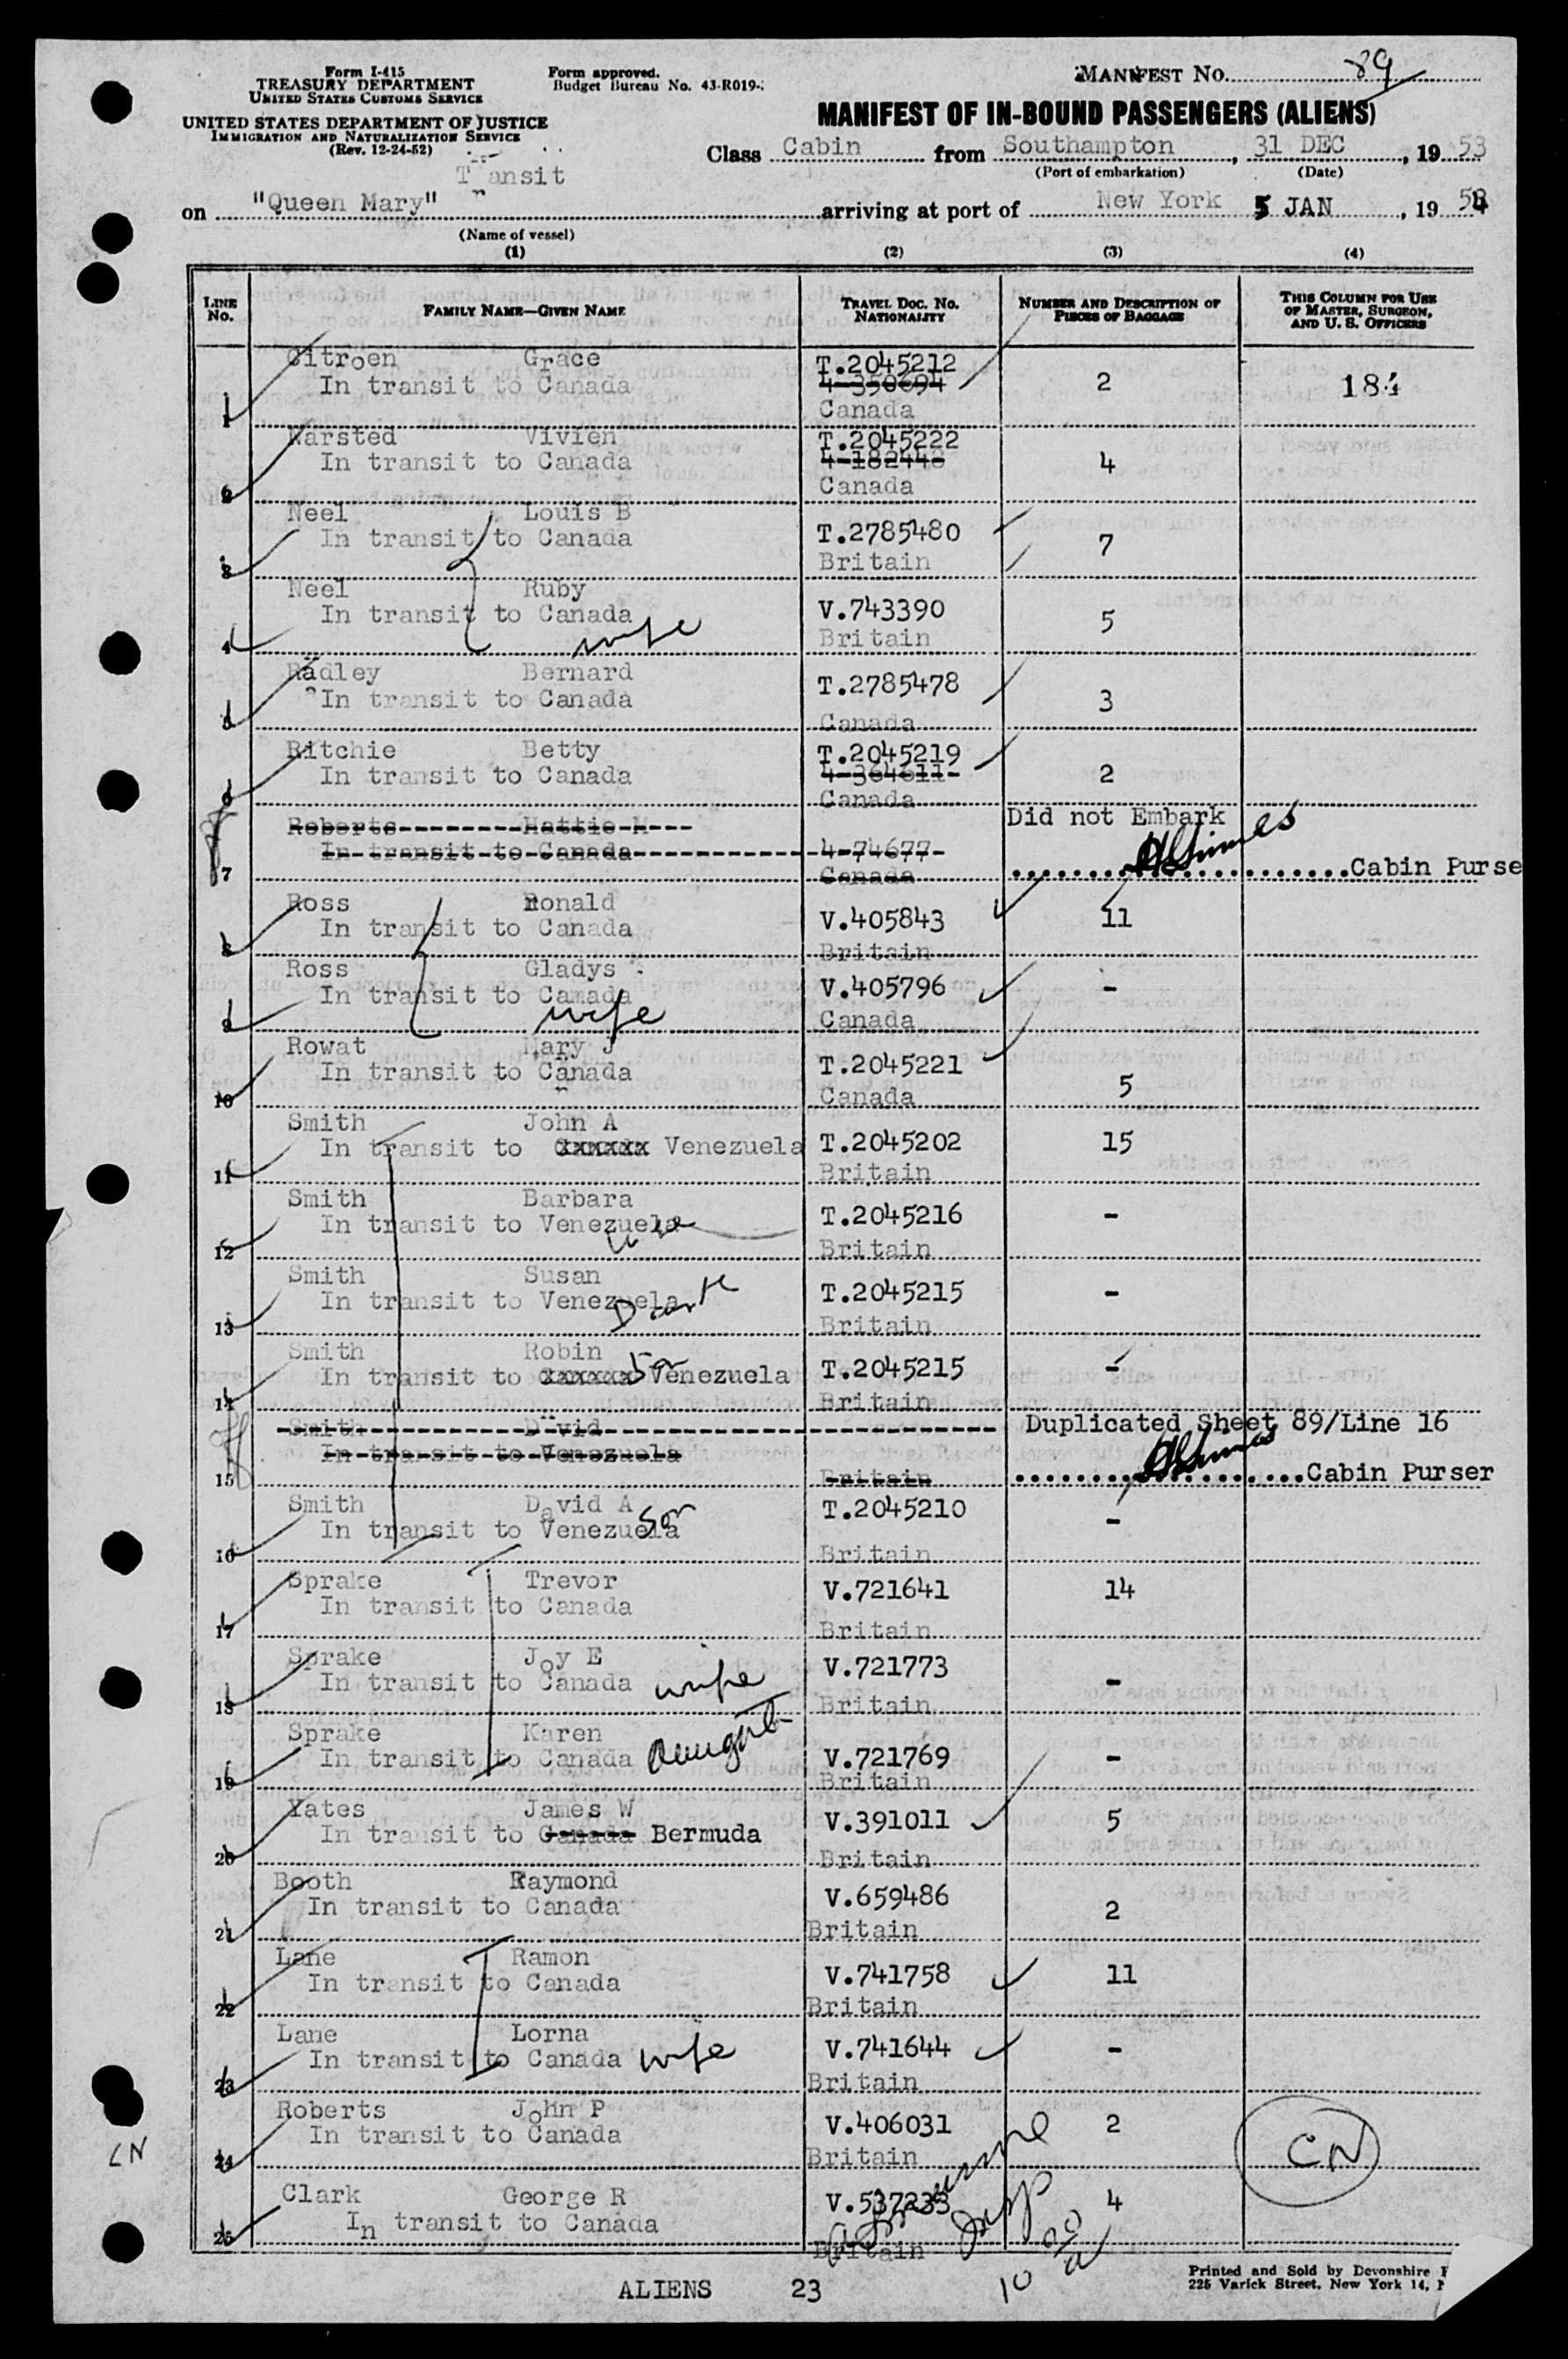 Form I-415
TREASURY DEPARTMENT
UNITED STATES CUSTOMS SERVICE
UNITED STATES DEPARTMENT OF JUSTICE
IMMIGRATION AND NATURALIZATION SERVICE
(Rev. 12-24-52)
Form approved.
Budget Bureau No. 43-R019-
MANIFEST No. 89
MANIFEST OF IN-BOUND PASSENGERS (ALIENS)
Class Cabin from Southampton, 31 DEC, 19 53
(Port of embarkation) (Date)
Transit
on "Queen Mary" arriving at port of New York 5 JAN, 19 54
(Name of vessel)
(1) (2) (3) (4)
LINE No. FAMILY NAME—GIVEN NAME TRAVEL DOC. NO. NATIONALITY NUMBER AND DESCRIPTION OF PIECES OF BAGGAGE THIS COLUMN FOR USE OF MASTER, SURGEON, AND U. S. OFFICERS
Citroen Grace T.2045212
In transit to Canada 4-350694 2 184
1 Canada
Warsted Vivien T.2045222
In transit to Canada 4-182448 4
2 Canada
Neel Louis B T.2785480
In transit to Canada 7
3 Britain
Neel Ruby V.743390
In transit to Canada 5
4 wife Britain
Radley Bernard T.2785478
In transit to Canada 3
5 Canada
Ritchie Betty T.2045219
In transit to Canada 4-364611- 2
6 Canada
Roberts Hattie M Did not Embark
In transit to Canada 4-74677-
7 Canada Cabin Purse
Ross Ronald V.405843 11
In transit to Canada
8 Britain
Ross Gladys V.405796 -
In transit to Camada
9 wife Canada
Rowat Mary J T.2045221
In transit to Canada 5
10 Canada
Smith John A T.2045202 15
In transit to xxxxxx Venezuela
11 Britain
Smith Barbara T.2045216 -
In transit to Venezuela
12 Britain
Smith Susan T.2045215 -
In transit to Venezuela
13 Britain
Smith Robin T.2045215 -
In transit to xxxxxx Venezuela son
14 Britain
Smith David Duplicated Sheet 89/Line 16
In transit to Venezuela
15 Britain Cabin Purser
Smith David A T.2045210 -
In transit to Venezuela son
16 Britain
Sprake Trevor V.721641 14
In transit to Canada
17 Britain
Sprake Joy E V.721773 -
In transit to Canada wife
18 Britain
Sprake Karen V.721769 -
In transit to Canada
19 Britain
Yates James W V.391011 5
In transit to Canada Bermuda
20 Britain
Booth Raymond V.659486 2
In transit to Canada
21 Britain
Lane Ramon V.741758 11
In transit to Canada
22 Britain
Lane Lorna V.741644 -
In transit to Canada wife
23 Britain
Roberts John P V.406031 2
In transit to Canada CN
24 Britain
Clark George R V.537233 4
In transit to Canada
25 Britain
ALIENS 23
Printed and Sold by Devonshire
225 Varick Street, New York 14,